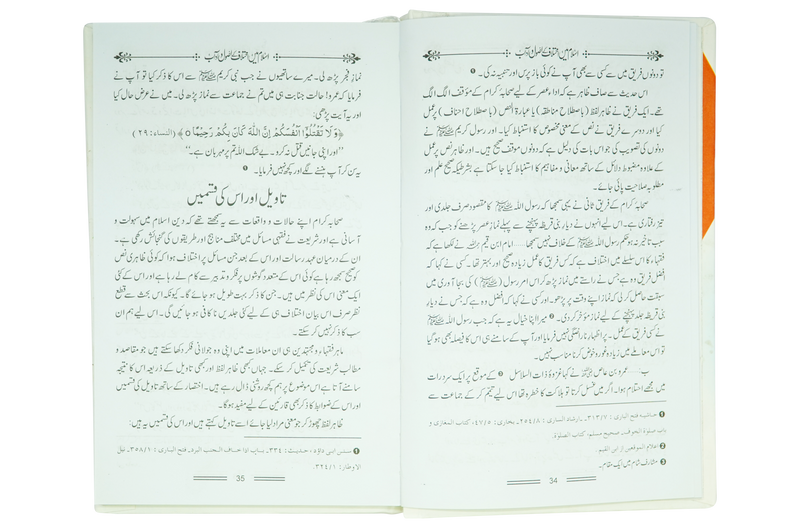 اسلام میں اختلاف کے اصول و آداب
تو دونوں فریق میں سے کسی سے بھی آپ نے کوئی باز پرس اور تنبیہ نہ کی۔ ❶
اس حدیث سے صاف ظاہر ہے کہ اداء عصر کے لیے صحابہ کرام کے مؤقف الگ الگ
تھے۔ ایک فریق نے ظاہر لفظ (باصطلاح مناطقہ) یا عبارۃ النص (باصطلاح احناف) پر عمل
کیا اور دوسرے فریق نے نص کے معنی مخصوص کا استنباط کیا۔ اور رسول کریم ﷺ نے
دونوں کی تصویب کی جو اس بات کی دلیل ہے کہ دونوں موقف صحیح ہیں۔ اور ظاہر نص پر عمل
کے علاوہ مضبوط دلائل کے ساتھ معانی و مفاہیم کا استنباط کیا جا سکتا ہے بشرطیکہ صحیح علم اور
مطلوبہ صلاحیت پائی جائے۔
صحابہ کرام کے فریق ثانی نے یہی سمجھا کہ رسول اللہ ﷺ کا مقصود صرف جلدی اور
تیز رفتاری ہے۔ اس لیے انہوں نے دیار بنی قریظہ پہنچنے سے پہلے نماز عصر پڑھنے کو جب کہ وہ
سبب تاخیر نہ ہو حکم رسول اللہ ﷺ کے خلاف نہیں سمجھا۔ امام ابن قیم رحمہ اللہ نے لکھا ہے کہ
فقہاء کا اس سلسلے میں اختلاف ہے کہ کس فریق کا عمل زیادہ صحیح اور بہتر تھا۔ کسی نے کہا کہ
افضل فریق وہ ہے جس نے راستے میں نماز پڑھ کر اس امر رسول (ﷺ) کی بجا آوری میں
سبقت حاصل کر لی کہ نماز اپنے وقت پر پڑھو۔ اور کسی نے کہا کہ افضل وہ ہے کہ جس نے دیار
بنی قریظہ جلد پہنچنے کے لیے نماز مؤخر کر دی۔ ❷ میرا اپنا خیال یہ ہے کہ جب رسول اللہ ﷺ
نے کسی فریق کے عمل پر اظہار ناراضگی نہیں فرمایا اور آپ کے سامنے ہی اس کا فیصلہ بھی ہو گیا
تو اس معاملے میں زیادہ غور و خوض کرنا مناسب نہیں۔
ب: عمرو بن عاص نے کہا غزوۂ ذات السلاسل ❸ کے موقع پر ایک سرد رات
میں مجھے احتلام ہوا۔ اگر میں غسل کرتا تو ہلاکت کا خطرہ تھا اس لیے تیمم کر کے جماعت سے
❶ فتح الباری: ۳۱۳/۷۔ ارشاد الساری: ۲۵۴/۸۔ بخاری: ۴۷/۵، کتاب المغازی و
باب صلوۃ الخوف۔ صحیح مسلم، کتاب الصلوۃ۔
❷ اعلام الموقعین از ابن القیم۔
❸ مشارف شام میں ایک مقام۔
34
اسلام میں اختلاف کے اصول و آداب
نماز فجر پڑھ لی۔ میرے ساتھیوں نے جب نبی کریم ﷺ سے اس کا ذکر کیا تو آپ نے
فرمایا کہ عمرو! حالت جنابت ہی میں تم نے جماعت سے نماز پڑھ لی۔ میں نے عرض حال کیا
اور یہ آیت پڑھی:
﴿وَلَا تَقْتُلُوْٓا اَنْفُسَكُمْ اِنَّ اللّٰهَ كَانَ بِكُمْ رَحِيْمًا﴾ (النساء: ۲۹)
”اور اپنی جانیں قتل نہ کرو۔ بے شک اللہ تم پر مہربان ہے۔“
یہ سن کر آپ ہنسنے لگے اور کچھ نہیں فرمایا۔ ❶
تاویل اور اس کی قسمیں
صحابہ کرام اپنے حالات و واقعات سے یہ سمجھتے تھے کہ دین اسلام میں سہولت و
آسانی ہے اور شریعت نے فقہی مسائل میں مختلف مناہج اور طریقوں کی گنجائش رکھی ہے۔
ان کے درمیان عہد رسالت اور اس کے بعد جن مسائل پر اختلاف ہوا کہ کوئی ظاہری نص
کو صحیح سمجھ رہا ہے کوئی اس کے متعدد گوشوں پر فکر و تدبر سے کام لے رہا ہے اور اس کے کئی
ایک معنی اس کی نظر میں ہیں۔ جن کا ذکر بہت طویل ہو جائے گا۔ کیونکہ اس بحث سے قطع
نظر صرف اس بیان اختلاف ہی کے لیے کئی جلدیں نا کافی ہو جائیں گی۔ اس لیے ہم ان
سب کا ذکر نہیں کر سکتے۔
ماہر فقہاء و مجتہدین ہی ان معاملات میں اپنی وہ جولانی فکر دکھا سکتے ہیں جو مقاصد و
مطالب شریعت کی تکمیل کر سکے۔ جہاں بھی ظاہر لفظ اور کبھی تاویل کے ذریعہ اس کا نتیجہ
سامنے آتا ہے اس موضوع پر ہم کچھ روشنی ڈال رہے ہیں۔ اختصار کے ساتھ تاویل کی قسمیں
اور اس کے ضوابط کا ذکر بھی قارئین کے لیے مفید ہوگا۔
ظاہر لفظ چھوڑ کر جو معنی مراد لیا جائے اسے تاویل کہتے ہیں اور اس کی قسمیں یہ ہیں:
❶ سنن ابی داؤد، حدیث: ۳۳۴۔ باب اذا خاف الجنب البرد۔ فتح الباری: ۳۵۸/۱۔ نیل
الاوطار: ۳۲۴/۱۔
35